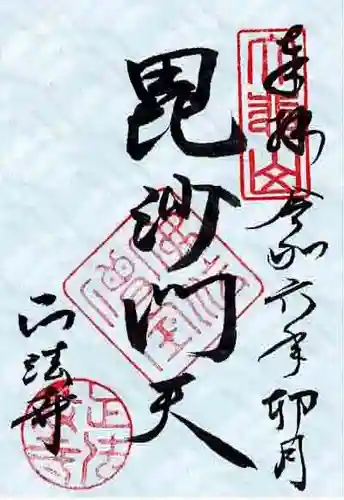 奉拝
令和六年卯月
毘沙門天
正法寺